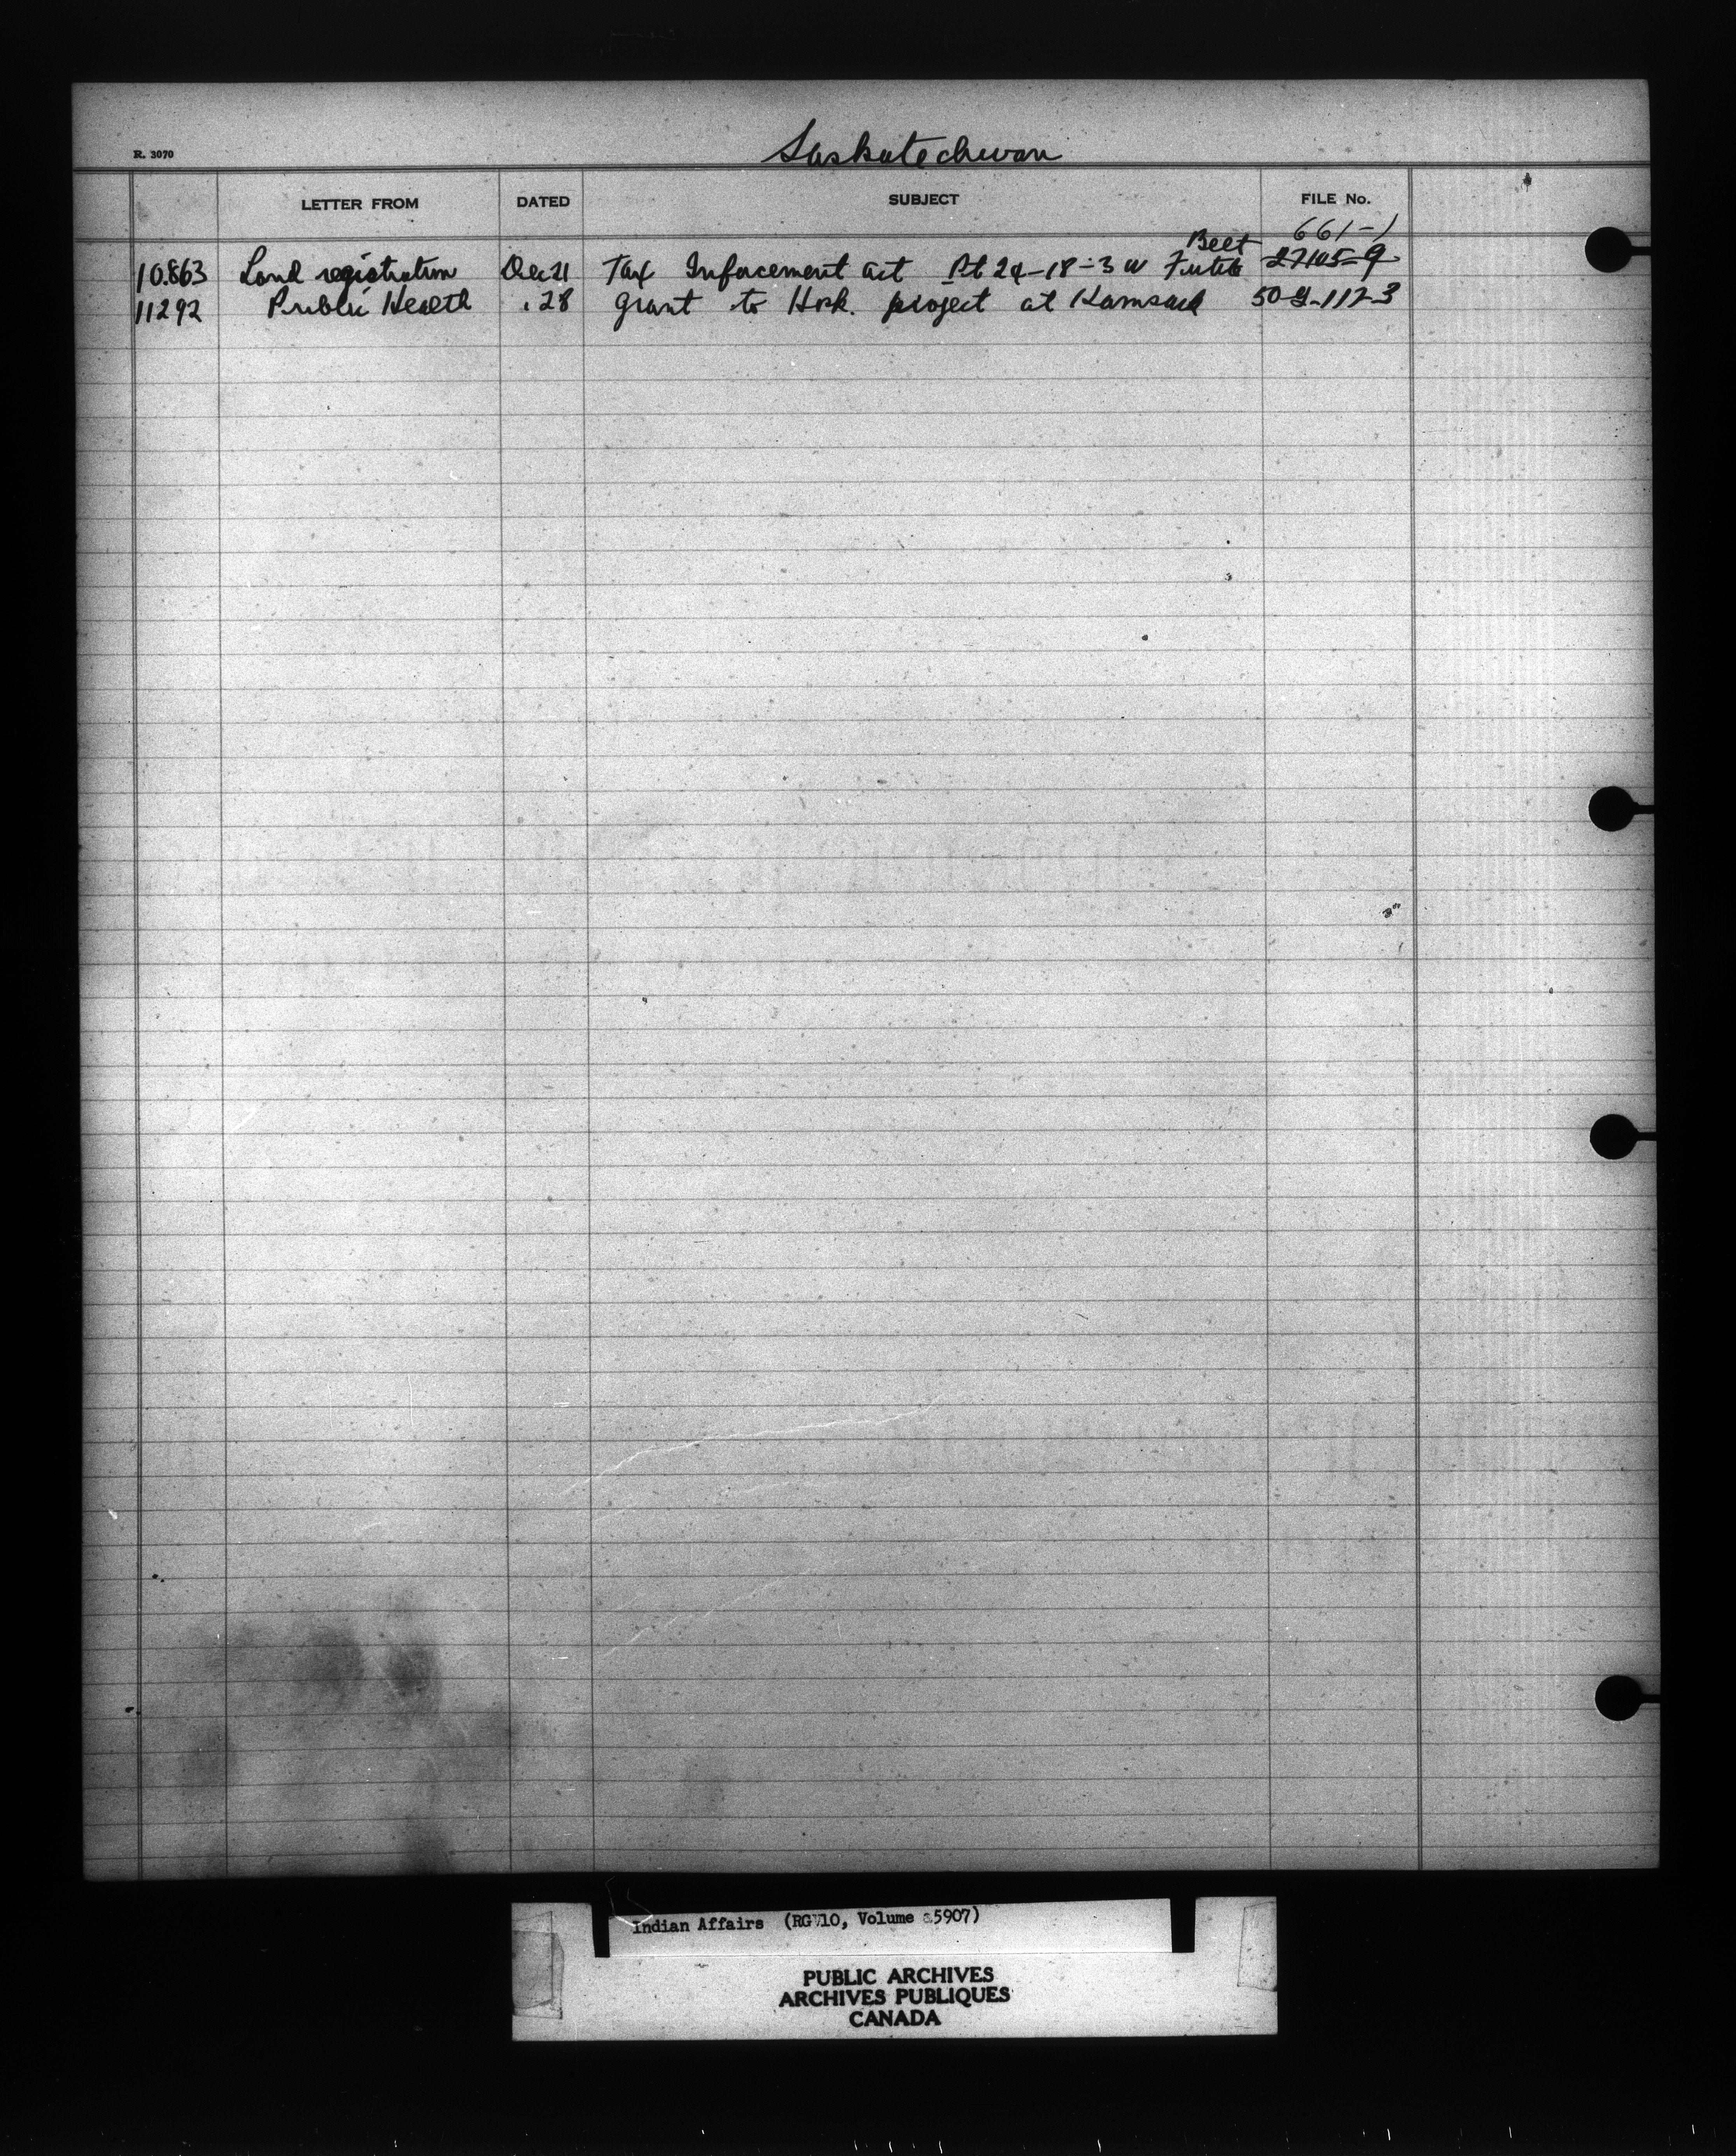 Saskatechwan
R. 3070
LETTER FROM DATED SUBJECT FILE No.
Beet 661-1
10.863 Land registration Dec 21 Tax Inforcement act Pt 24-18-3 W 27105-9
11292 Public Health . 28 grant to Hosh. project at Kamsack 50-9-112-3
Indian Affairs (RG 10, Volume 5907)
PUBLIC ARCHIVES
ARCHIVES PUBLIQUES
CANADA